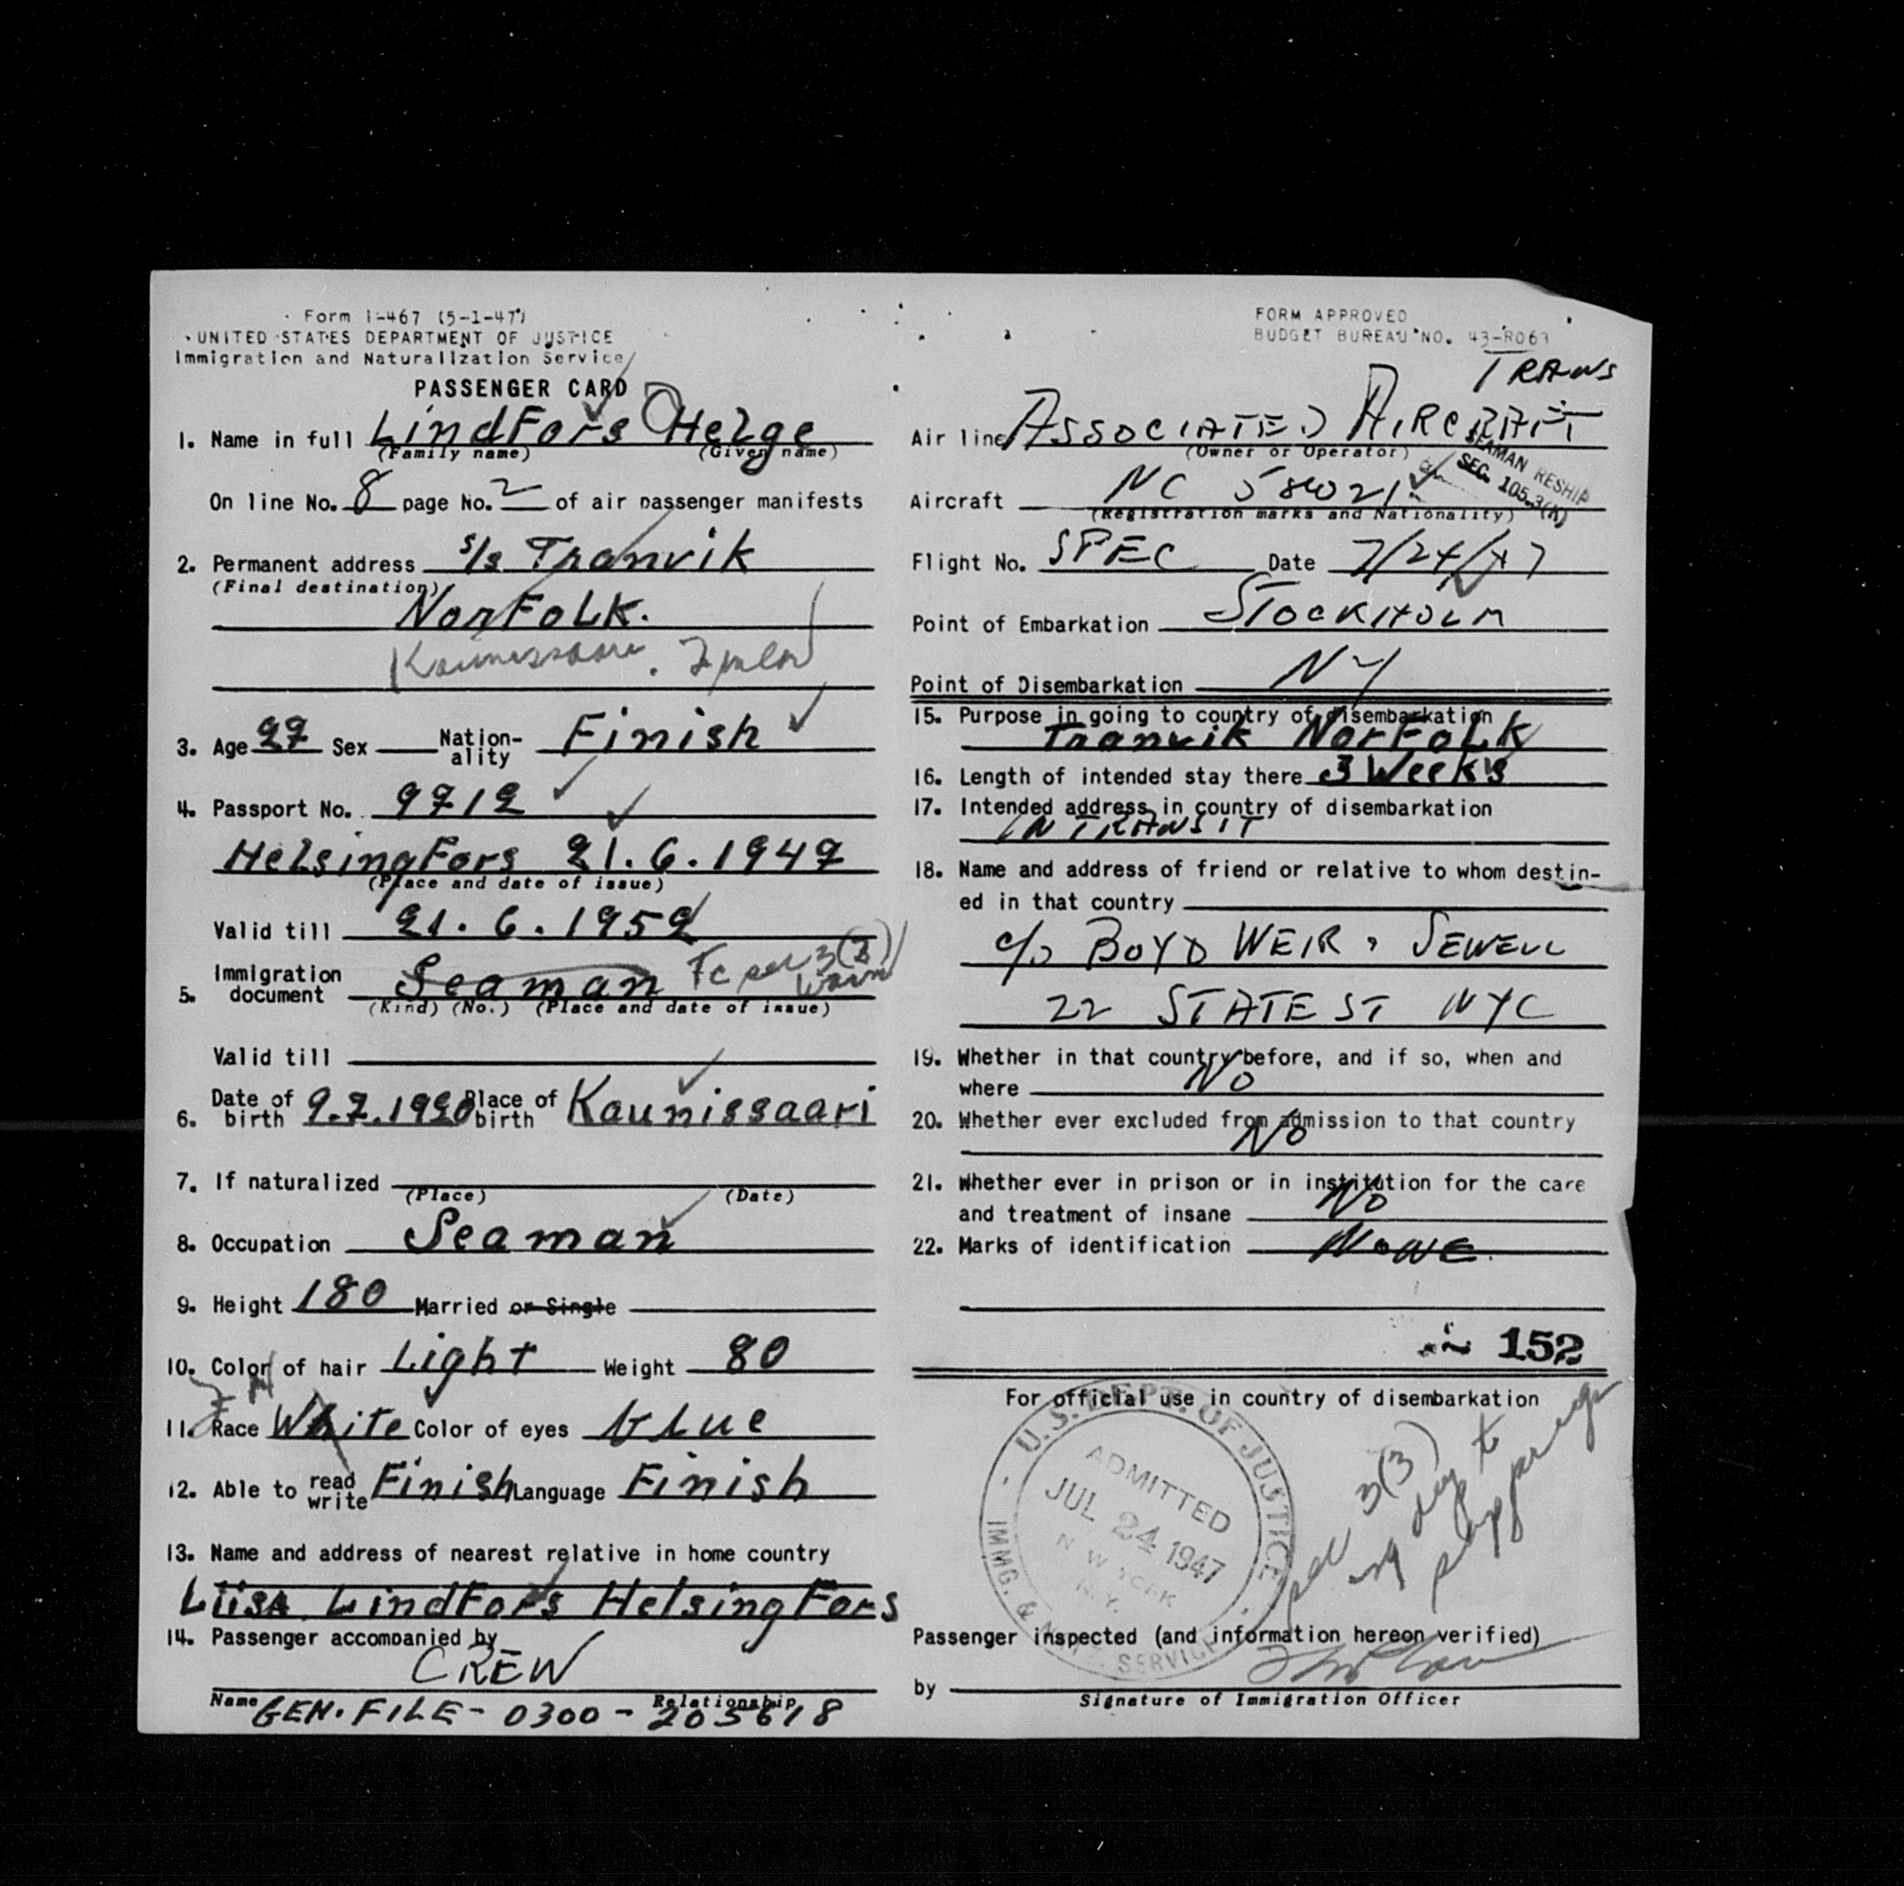 Form I-467 (5-1-47)
UNITED STATES DEPARTMENT OF JUSTICE
Immigration and Naturalization Service
PASSENGER CARD
1. Name in full LindFors Helge
(Family name) (Given name)
On line No. 8 page No. 2 of air passenger manifests
2. Permanent address s/s Tranvik
(Final destination)
NorFoLK.
Kaunissaare.
3. Age 27 Sex Nation-ality Finish
4. Passport No. 9712
HelsingFors 21.6.1947
(Place and date of issue)
Valid till 21.6.1952
5. Immigration document Seaman
(Kind) (No.) (Place and date of issue)
Valid till
6. Date of birth 9.7.1920 Place of birth Kaunissaari
7. If naturalized
(Place) (Date)
8. Occupation Seaman
9. Height 180 Married or Single
10. Color of hair Light Weight 80
11. Race White Color of eyes blue
12. Able to read write Finish Language Finish
13. Name and address of nearest relative in home country
Liisa LindFors HelsingFors
14. Passenger accompanied by
CREW
Name Relationship
GEN. FILE - 0300 - 205618
FORM APPROVED
BUDGET BUREAU NO. 43-R063
TRANS
Air line ASSOCIATED AIRCRAFT
(Owner or Operator)
SEAMAN RESHIP
SEC. 105.3(K)
Aircraft NC 58021
(Registration marks and Nationality)
Flight No. SPEC Date 7/24/47
Point of Embarkation STOCKHOLM
Point of Disembarkation NY
15. Purpose in going to country of disembarkation
Tranvik NorFoLK
16. Length of intended stay there 3 Weeks
17. Intended address in country of disembarkation
IN TRANSIT
18. Name and address of friend or relative to whom destin-
ed in that country
c/o BOYD WEIR & SEWELL
22 STATE ST NYC
19. Whether in that country before, and if so, when and
where NO
20. Whether ever excluded from admission to that country
NO
21. Whether ever in prison or in institution for the care
and treatment of insane NO
22. Marks of identification NONE.
152
For official use in country of disembarkation
U.S. DEPT. OF JUSTICE
ADMITTED
JUL 24 1947
NEW YORK
N.Y.
IMMG. & NATZ. SERVICE
3(3)
Passenger inspected (and information hereon verified)
by
Signature of Immigration Officer